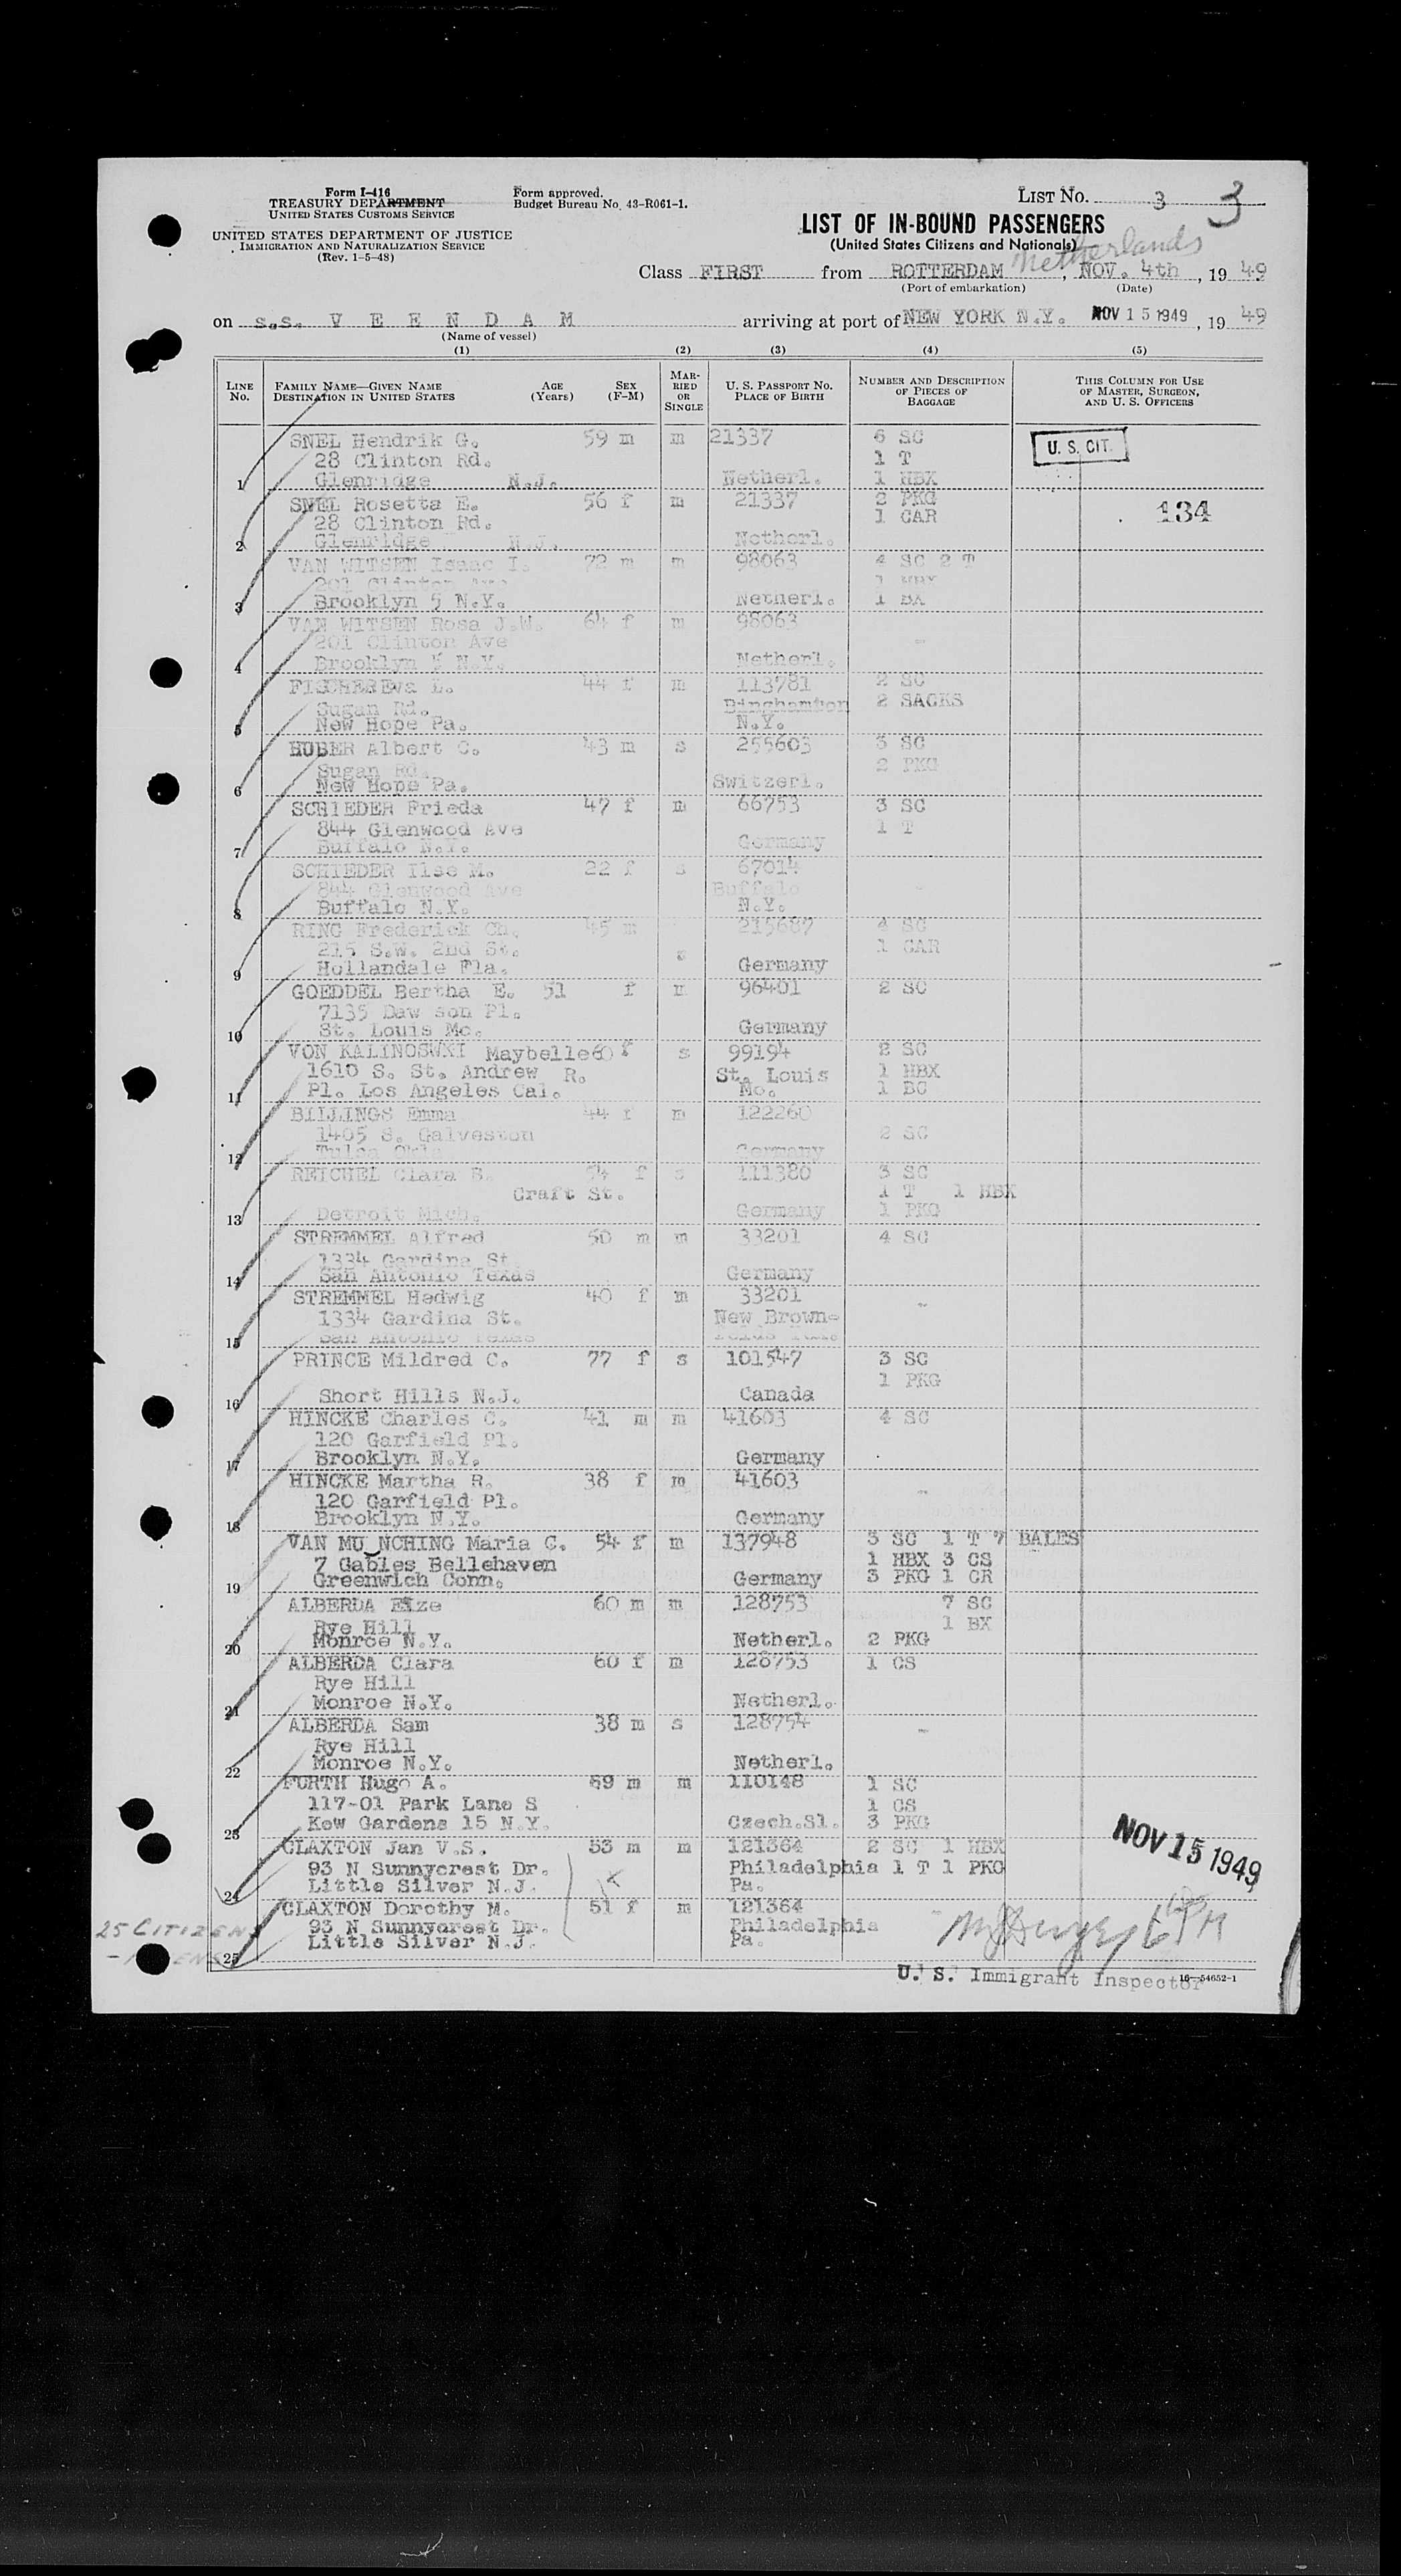 Form I-416
TREASURY DEPARTMENT
UNITED STATES CUSTOMS SERVICE
UNITED STATES DEPARTMENT OF JUSTICE
IMMIGRATION AND NATURALIZATION SERVICE
(Rev. 1-5-48)
Form approved.
Budget Bureau No. 43-R061-1.
LIST NO. 3 3
LIST OF IN-BOUND PASSENGERS
(United States Citizens and Nationals)
Netherlands
Class FIRST from ROTTERDAM, NOV. 4th, 19 49
(Port of embarkation) (Date)
on s.s. V E E N D A M arriving at port of NEW YORK N.Y. NOV 15 1949, 19 49
(Name of vessel)
(1) (2) (3) (4) (5)
LINE NO. FAMILY NAME—GIVEN NAME DESTINATION IN UNITED STATES AGE (Years) SEX (F-M) MARRIED OR SINGLE U. S. PASSPORT NO. PLACE OF BIRTH NUMBER AND DESCRIPTION OF PIECES OF BAGGAGE THIS COLUMN FOR USE OF MASTER, SURGEON, AND U. S. OFFICERS
SNEL Hendrik G. 59 m m 21337 6 SC U. S. CIT.
28 Clinton Rd. 1 T
1 Glenridge N.J. Netherl. 1 HBX
SNEL Rosetta E. 56 f m 21337 2 PKG
28 Clinton Rd. 1 CAR 134
2 Glenridge N.J. Netherl.
VAN WITSEN Isaac I. 72 m m 98063 4 SC 2 T
201 Clinton Ave 1 HBX
3 Brooklyn 5 N.Y. Netherl. 1 BX
VAN WITSEN Rosa J.W. 64 f m 98063
201 Clinton Ave -
4 Brooklyn 5 N.Y. Netherl.
FISCHER Eva L. 44 f m 113781 2 SC
Sugan Rd. Binghamton 2 SACKS
5 New Hope Pa. N.Y.
HUBER Albert C. 43 m s 255603 3 SC
Sugan Rd. 2 PKG
6 New Hope Pa. Switzerl.
SCHIEDER Frieda 47 f m 66753 3 SC
844 Glenwood Ave 1 T
7 Buffalo N.Y. Germany
SCHIEDER Ilse M. 22 f s 67014
844 Glenwood Ave Buffalo -
8 Buffalo N.Y. N.Y.
RING Frederick Ch. 45 m 215687 4 SC
215 S.W. 2nd St. s 1 CAR
9 Hollandale Fla. Germany
GOEDDEL Bertha E. 51 f m 96401 2 SC
7135 Daw son Pl.
10 St. Louis Mo. Germany
VON KALINOSWKI Maybelle 60 f s 99194 2 SC
1610 S. St. Andrew R. St. Louis 1 HBX
11 Pl. Los Angeles Cal. Mo. 1 BC
BILLINGS Emma 44 f m 122260
1405 S. Galveston 2 SC
12 Tulsa Okla Germany
REICHEL Clara B. 54 f s 111380 3 SC
Craft St. 1 T 1 HBX
13 Detroit Mich. Germany 1 PKG
STREMMEL Alfred 50 m m 33201 4 SC
1334 Gardina St
14 San Antonio Texas Germany
STREMMEL Hedwig 40 f m 33201 -
1334 Gardina St. New Brown-
15 San Antonio Texas
PRINCE Mildred C. 77 f s 101547 3 SC
1 PKG
16 Short Hills N.J. Canada
HINCKE Charles C. 41 m m 41603 4 SC
120 Garfield Pl.
17 Brooklyn N.Y. Germany
HINCKE Martha R. 38 f m 41603
120 Garfield Pl. -
18 Brooklyn N.Y. Germany
VAN MU NCHING Maria C. 54 f m 137948 3 SC 1 T 7 BALES
7 Gables Bellehaven 1 HBX 3 CS
19 Greenwich Conn. Germany 3 PKG 1 CR
ALBERDA Elze 60 m m 128753 7 SC
Rye Hill 1 BX
20 Monroe N.Y. Netherl. 2 PKG
ALBERDA Clara 60 f m 128753 1 CS
Rye Hill
21 Monroe N.Y. Netherl.
ALBERDA Sam 38 m s 128754 -
Rye Hill
22 Monroe N.Y. Netherl.
FURTH Hugo A. 59 m m 110148 1 SC
117-01 Park Lane S 1 CS
23 Kew Gardens 15 N.Y. Czech.Sl. 3 PKG
CLAXTON Jan V.S. 53 m m 121364 2 SC 1 HBX NOV 15 1949
93 N Sunnycrest Dr. Philadelphia 1 T 1 PKG
24 Little Silver N.J. Pa.
CLAXTON Dorothy M. 51 f m 121364
93 N Sunnycrest Dr. Philadelphia
25 CITIZENS
25 Little Silver N.J. Pa.
U. S. Immigrant Inspector 16—54652-1